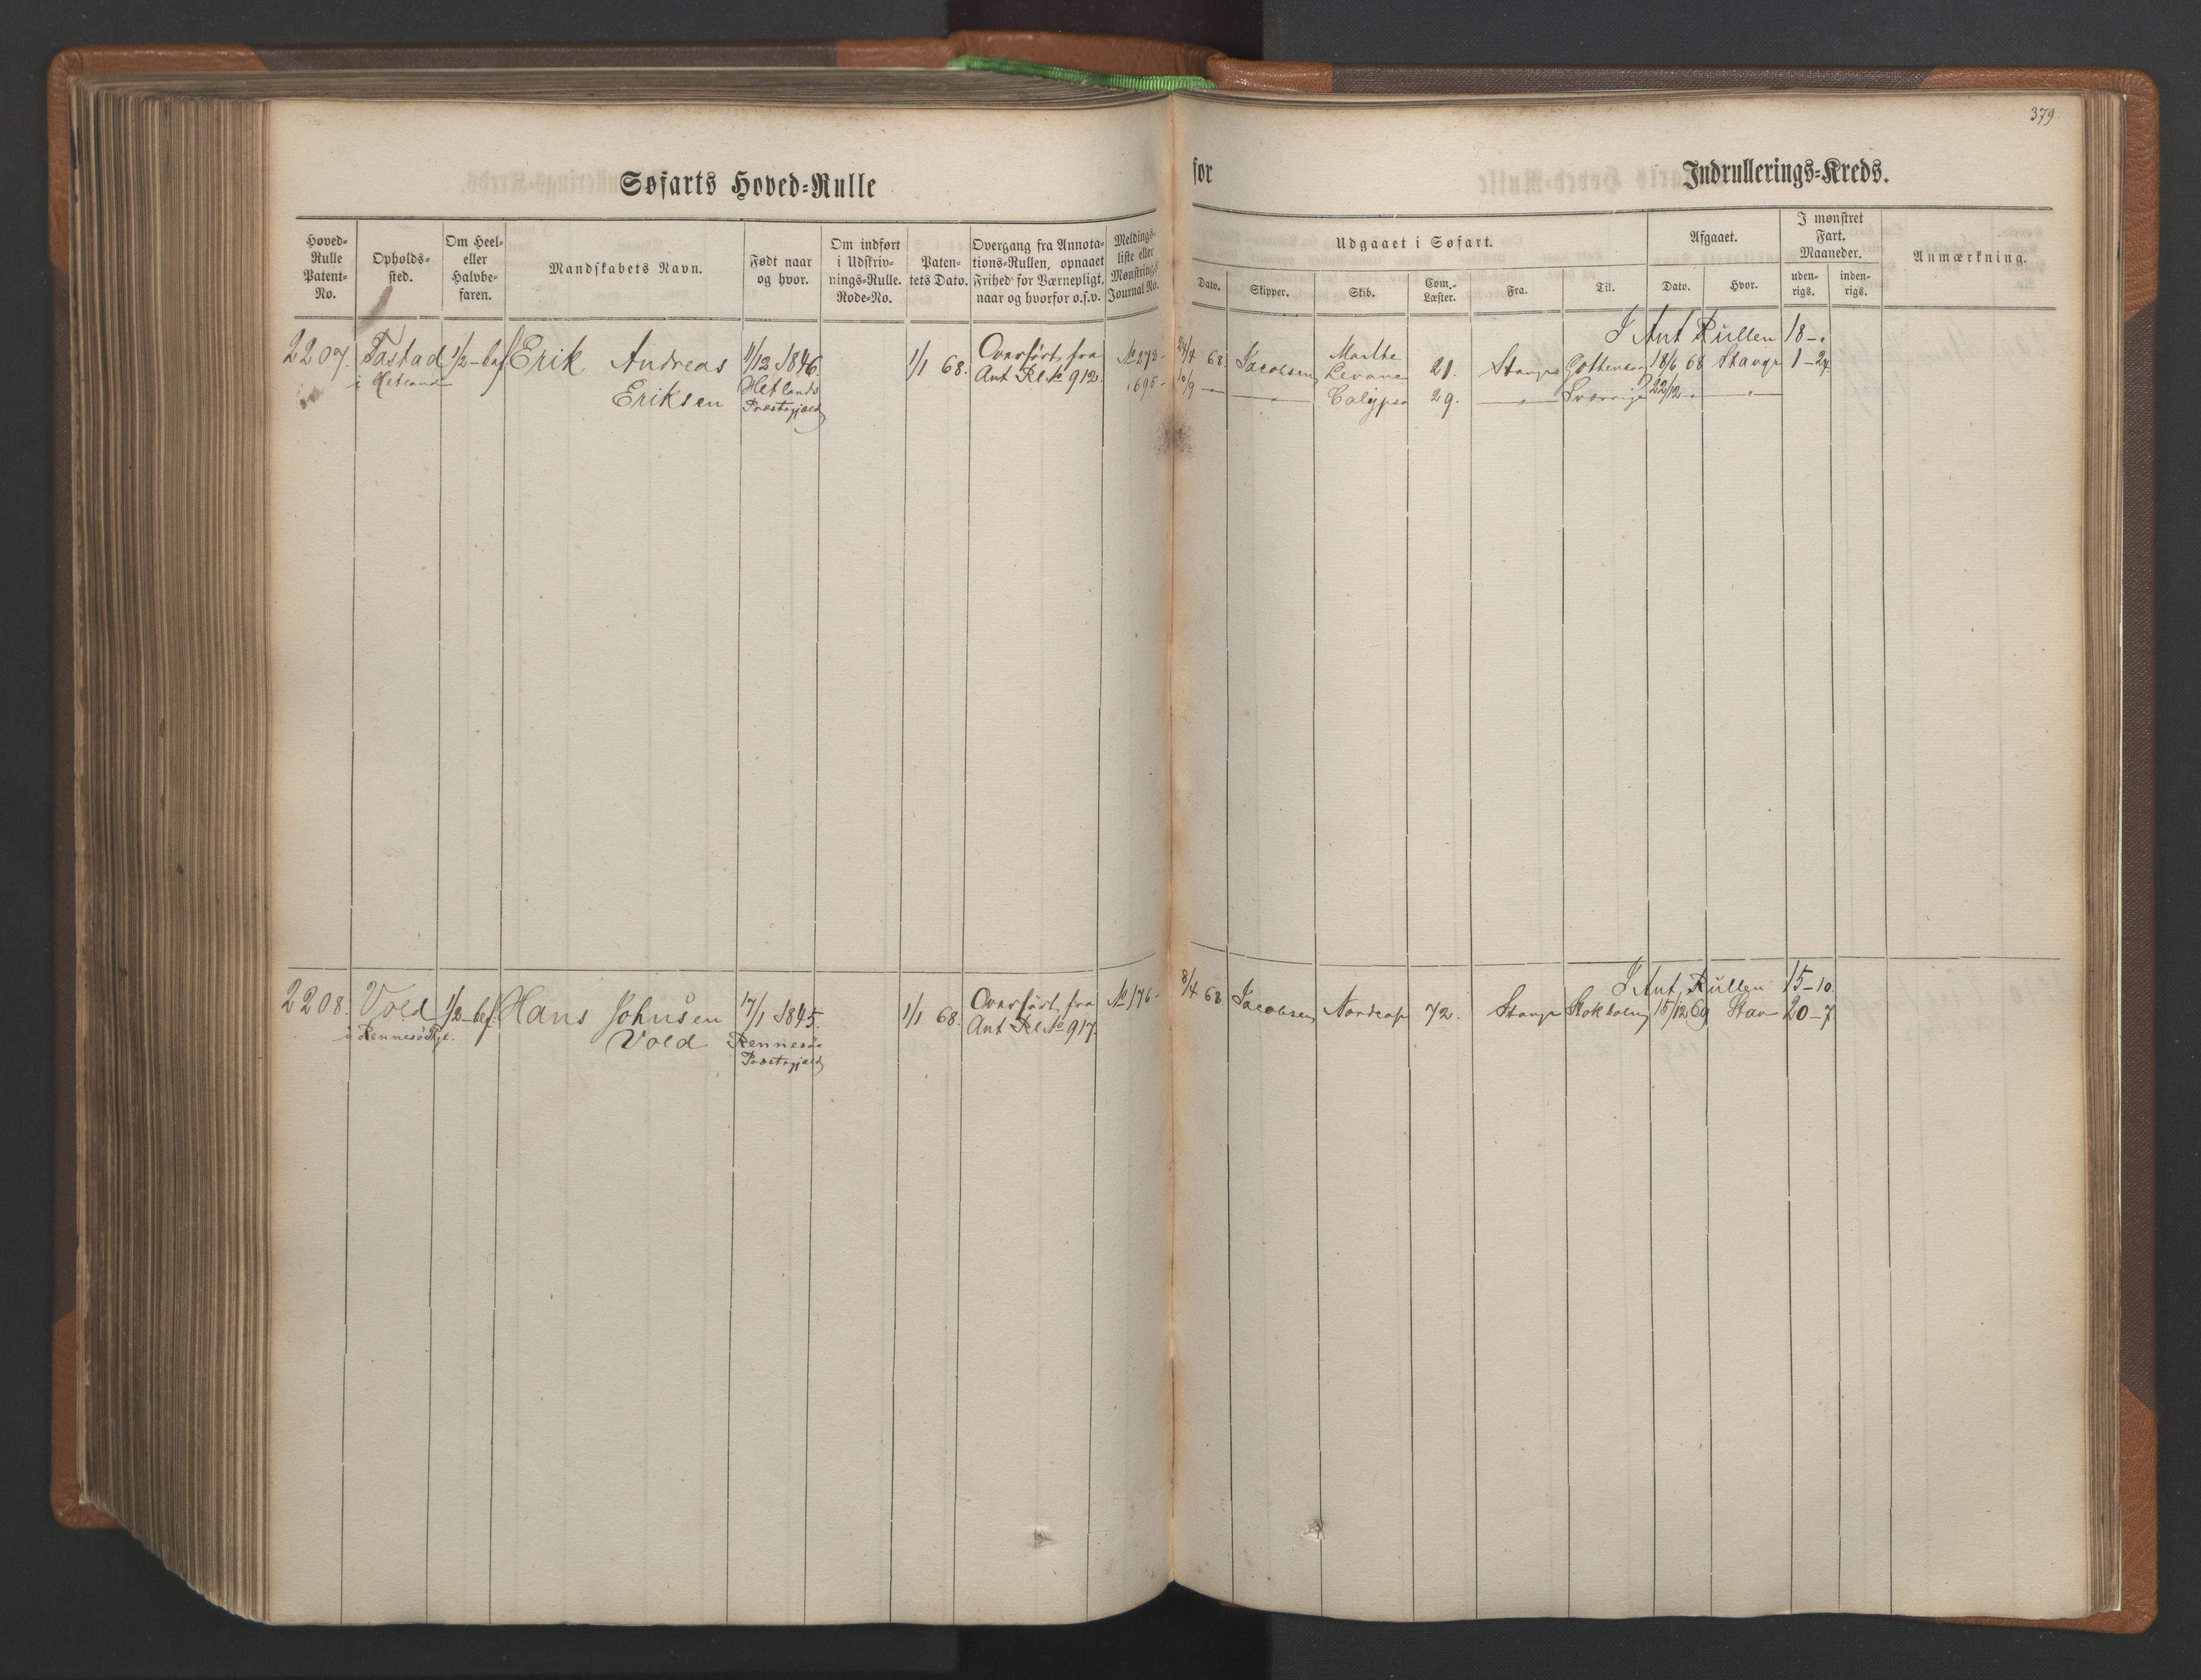 379
Søfarts Hoved-Rulle for Indrullerings-Kreds.
Hoved-Rulle Patent-No.
Opholds-sted.
Om Heel- eller Halvbe-faren.
Mandskabets Navn.
Født naar og hvor.
Om indført i Udskriv-nings-Rulle. Rode-No.
Paten-tets Dato.
Overgang fra Annota-tions-Rullen, opnaaet Frihed for Værnepligt, naar og hvorfor o.s.v.
Meldings-liste eller Mønstrings Journal No.
Udgaaet i Søfart.
Dato. Skipper. Skib. Com.-Læster. Fra. Til.
Afgaaet.
Dato. Hvor.
I mønstret Fart. Maaneder.
uden-rigs. inden-rigs.
Anmærkning.
I Ant Rullen 18-"
2207. Tastad 1/2-bef Erik Andreas 11/12 1846. 1/1 68. Overført fra No 273- 24/4 68 Jacobsen Marthe 21. Stavgr 18/6 68 Stavgr 1-24
i Hetland Eriksen Hetlands Præstegjeld Ant Rl No 912. " 695- 10/9 — " Calypso 29. " Sverrige 22/12 - "
I Ant, Rullen 15-10.
2208. Vold 1/2-bef. Hans Johnsen 17/1 1845. 1/1 68. Overført fra No 176- 8/4 68 Jacobsen Nordcap 72. Stavgr Stokholm 15/12 69 Stav 20-7
i Rennesø Pgl. Vold Rennesø Præstegjeld Ant Rl No 917.